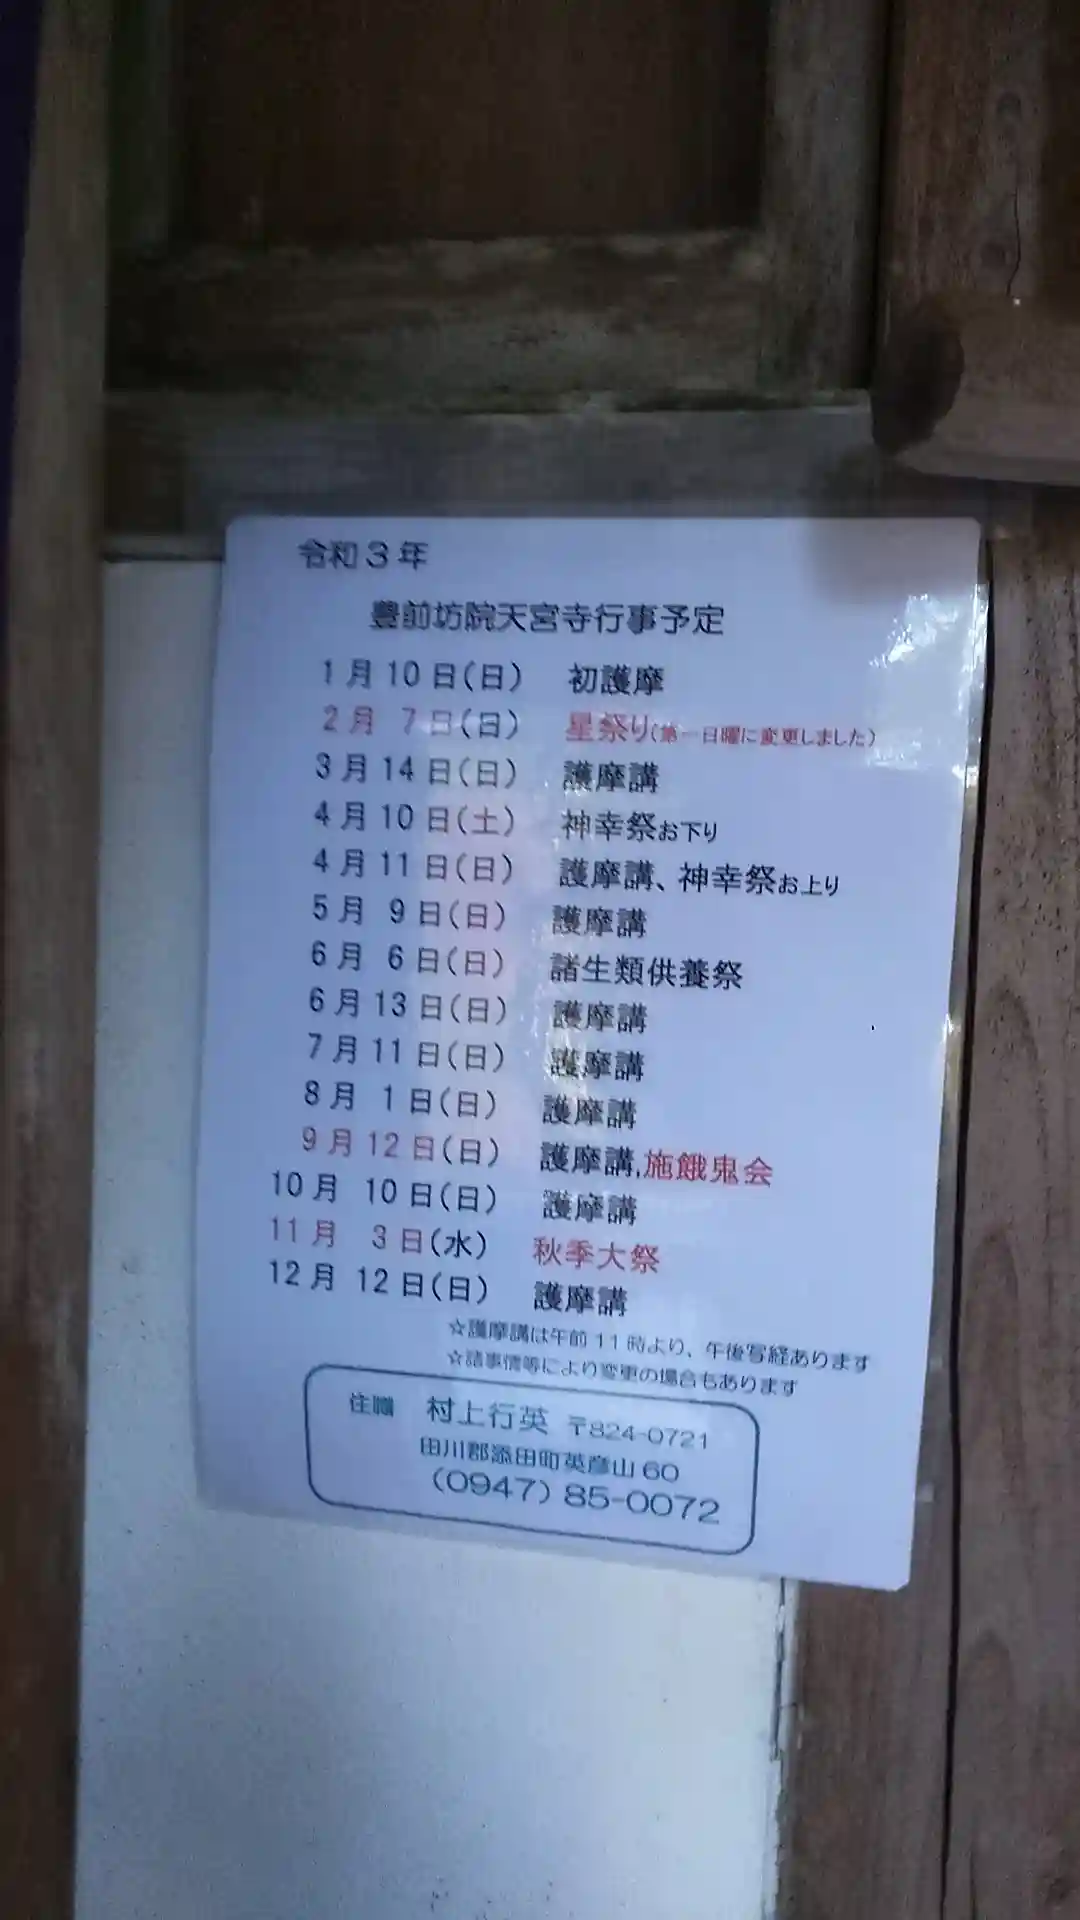 令和3年
豊前坊院天宮寺行事予定
1月10日(日) 初護摩
2月 7日(日) 星祭り(第一日曜に変更しました)
3月14日(日) 護摩講
4月10日(土) 神幸祭お下り
4月11日(日) 護摩講、神幸祭お上り
5月 9日(日) 護摩講
6月 6日(日) 諸生類供養祭
6月13日(日) 護摩講
7月11日(日) 護摩講
8月 1日(日) 護摩講
9月12日(日) 護摩講,施餓鬼会
10月 10日(日) 護摩講
11月 3日(水) 秋季大祭
12月 12日(日) 護摩講
☆護摩講は午前11時より、午後写経あります
☆諸事情等により変更の場合もあります
住職 村上行英 〒824-0721
田川郡添田町英彦山60
(0947)85-0072